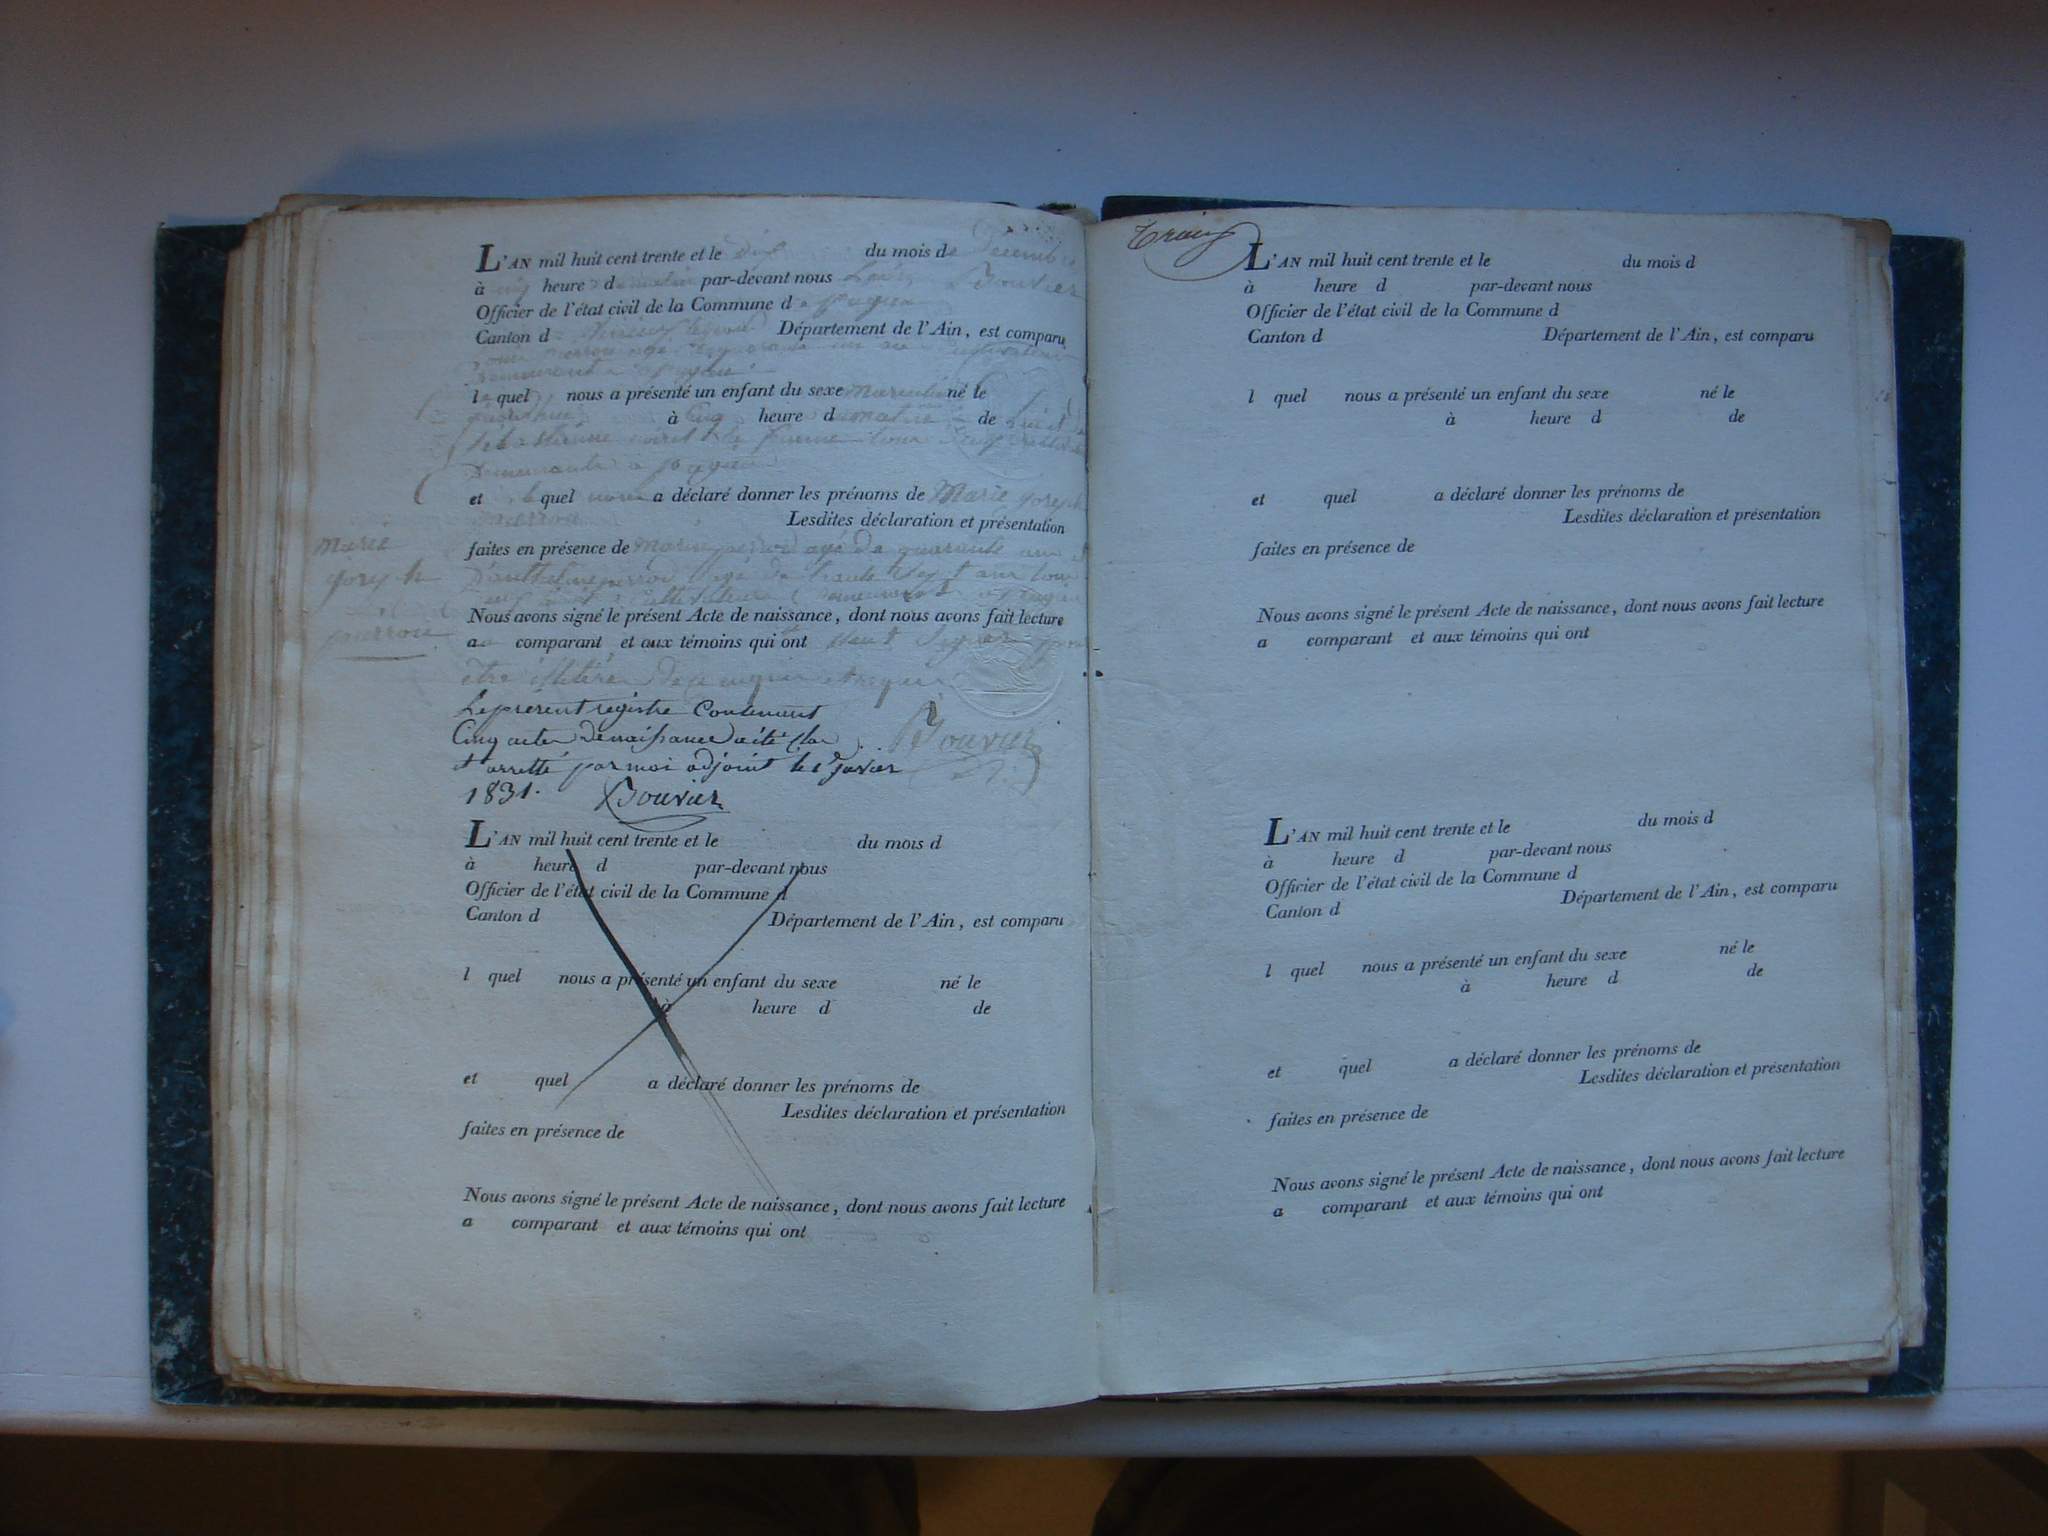 L'AN mil huit cent trente et le dix du mois de Décembre
à cinq heure du matin par-devant nous Louis Bouvier
Officier de l'état civil de la Commune d
Canton de Département de l'Ain, est comparu
âgé
Demeurant à
le quel nous a présenté un enfant du sexe Masculin né le
à Cinq heure du matin de lui et de
la femme tous deux
Demeurants à
et le quel nous a déclaré donner les prénoms de Marie Joseph
Lesdites déclaration et présentation
faites en présence de Marin perrou agé de quarante ans et
Marie
Joseph
D'anthelme perrou agé de trente sept ans tous
Nous avons signé le présent Acte de naissance, dont nous avons fait lecture
perrou
au comparant et aux témoins qui ont signer pour
être illitéré De ce enquis et requis
Le présent registre Contenant
Cinq actes de naissance a été clos Bouvier
et arretté par moi adjoint le 1er Janvier
1831. Bouvier
L'AN mil huit cent trente et le du mois d
à heure d par-devant nous
Officier de l'état civil de la Commune d
Canton d Département de l'Ain, est comparu
l quel nous a présenté un enfant du sexe né le
à heure d de
et quel a déclaré donner les prénoms de
Lesdites déclaration et présentation
faites en présence de
Nous avons signé le présent Acte de naissance, dont nous avons fait lecture
a comparant et aux témoins qui ont
L'AN mil huit cent trente et le du mois d
à heure d par-devant nous
Officier de l'état civil de la Commune d
Canton d Département de l'Ain, est comparu
l quel nous a présenté un enfant du sexe né le
à heure d de
et quel a déclaré donner les prénoms de
Lesdites déclaration et présentation
faites en présence de
Nous avons signé le présent Acte de naissance, dont nous avons fait lecture
a comparant et aux témoins qui ont
L'AN mil huit cent trente et le du mois d
à heure d par-devant nous
Officier de l'état civil de la Commune d
Canton d Département de l'Ain, est comparu
l quel nous a présenté un enfant du sexe né le
à heure d de
et quel a déclaré donner les prénoms de
Lesdites déclaration et présentation
faites en présence de
Nous avons signé le présent Acte de naissance, dont nous avons fait lecture
a comparant et aux témoins qui ont